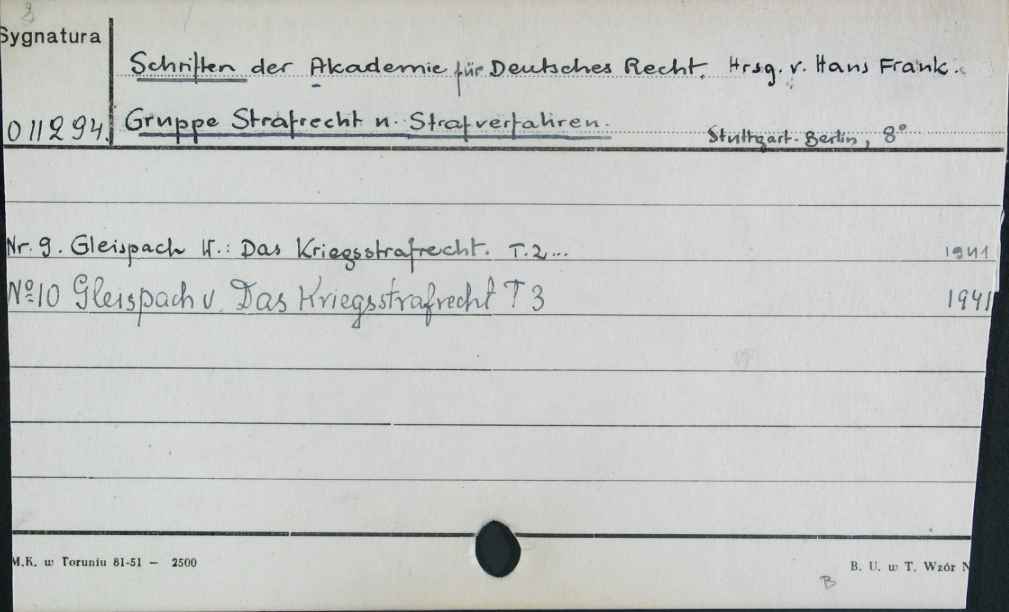 Sygnatura
Schriften der Akademie für Deutsches Recht. Hrsg. v. Hans Frank.
011294.
Gruppe Strafrecht u. Strafverfahren.
Stuttgart-Berlin, 8°
Nr. 9. Gleispach W.: Das Kriegsstrafrecht. T.2... 1941
No 10 Gleispach v. Das Kriegsstrafrecht T 3 1941
M.K. w Toruniu 81-51 — 2500
B. U. w T. Wzór N
B